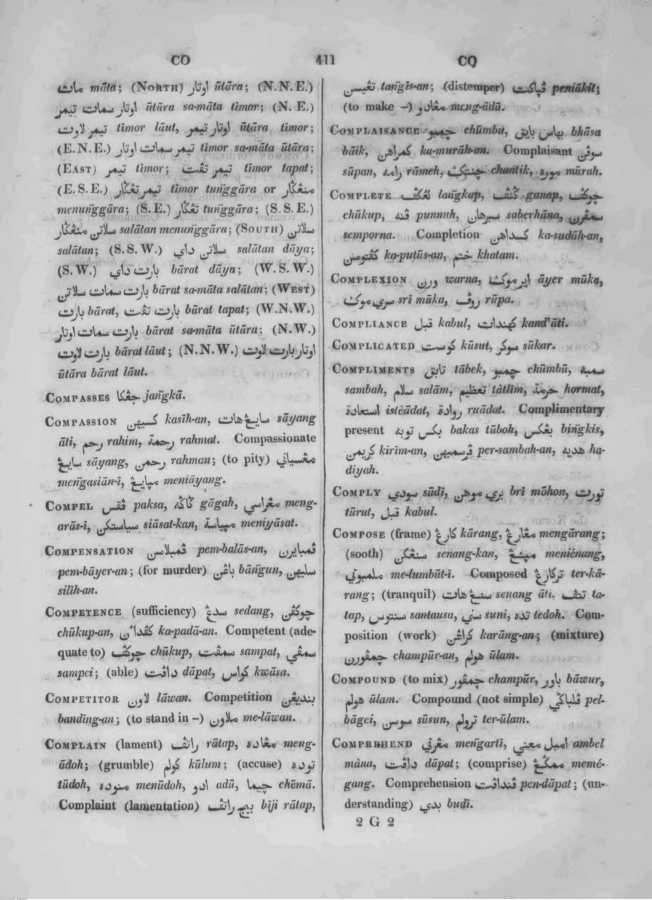 CO 411 CO
مات māta; (NORTH) اوتار ūtāra; (N.N.E.)
اوتار سمات تيمر ūtāra sa-māta tīmor; (N. E.)
تيمر لاوت tīmor lāut, تيمر اوتار ūtāra tīmor;
(E.N.E.) تيمر سمات اوتار tīmor sa-māta ūtāra;
(EAST) تيمر tīmor; تيمر تفت tīmor tapat;
(E.S.E.) تيمر تڠڬار tīmor tuṅggāra or منڠڬار
menuṅggāra; (S.E.) تڠڬار tuṅggāra; (S.S.E.)
سلاتن منڠڬار salātan menuṅggāra; (SOUTH) سلاتن
salātan; (S.S.W.) سلاتن داي salātan dāya;
(S.W.) بارت داي bārat dāya; (W.S.W.)
بارت سمات سلاتن bārat sa-māta salātan; (WEST)
بارت bārat, بارت تفت bārat tapat; (W.N.W.)
بارت سمات اوتار bārat sa-māta ūtāra; (N.W.)
بارت لاوت bārat lāut; (N.N.W.) اوتار بارت لاوت
ūtāra bārat lāut.
COMPASSES جڠک jaṅgkā.
COMPASSION کسيهن kasīh-an, سايڠ هات sāyang
āti, رحم rahim, رحمة rahmat. Compassionate
سايڠ sāyang, رحمن rahman; (to pity) مڠسياني
meṅgasiān-i, مپايڠ meniāyang.
COMPEL ڤقس paksa, ڬاڬه gāgah, مڠراسي meng-
arās-i, سياستکن siāsat-kan, مپياسة meniyāsat.
COMPENSATION ڤمبلاسن pem-balās-an, ڤمبايرن
pem-bāyer-an; (for murder) باڠن bāṅgun, سليهن
silīh-an.
COMPETENCE (sufficiency) سدڠ sedang, چوکڤن
chūkup-an, کڤدأن ka-padā-an. Competent (ade-
quate to) چوکڤ chūkup, سمڤت sampat, سمڤي
sampei; (able) داڤت dāpat, کواس kwāsa.
COMPETITOR لاون lāwan. Competition بنديڠن
banding-an; (to stand in –) ملاون me-lāwan.
COMPLAIN (lament) راتڤ rātap, مڠاده meng-
ādoh; (grumble) کولم kūlum; (accuse) توده
tūdoh, منوده menūdoh, ادو adū, چيما chēmā.
Complaint (lamentation) بيج راتڤ biji rātap,
تڠيسن taṅgīs-an; (distemper) ڤپاکت peniākit;
(to make –) مڠادو meng-ādū.
COMPLAISANCE چمبو chūmbu, بهاس بايق bhāsa
bāik, کمراهن ka-murāh-an. Complaisant سوڤن
sūpan, رامه rāmeh, چنتک chantik, موره mūrah.
COMPLETE لڠکڤ laṅgkap, ڬنڤ ganap, چوکڤ
chūkup, ڤنه punnuh, سبرهان saberhāna, سمڤرن
semporna. Completion کسداهن ka-sudāh-an,
کڤتوسن ka-putūs-an, ختم khatam.
COMPLEXION ورن warna, اير موک āyer mūka,
سري موک sri mūka, روڤ rūpa.
COMPLIANCE قبل kabul, کهندات kand'āti.
COMPLICATED کوست kūsut, سوکر sūkar.
COMPLIMENTS تابق tābek, چمبو chūmbū, سمبه
sambah, سلام salām, تعظيم tātlīm, حرمة hormat,
استعادة isteādat, روادة ruādat. Complimentary
present بکس توبه bakas tūboh, بڠکس biṅgkis,
کريمن kirīm-an, ڤرسمبهن per-sambah-an, هديه ha-
diyah.
COMPLY سودي sūdī, بري موهن bri mōhon, تورت
tūrut, قبل kabul.
COMPOSE (frame) کارڠ kārang, مڠارڠ mengārang;
(sooth) سنڠکن senang-kan, مپنڠ meniēnang,
ملمبوتي me-lumbūt-i. Composed ترکارڠ ter-kā-
rang; (tranquil) سنڠ هات senang āti, تتڤ ta-
tap, سنتوس santausa, سني suni, تده tedoh. Com-
position (work) کراڠن karāng-an; (mixture)
چمڤورن champūr-an, هولم ūlam.
COMPOUND (to mix) چمڤور champūr, باور bāwur,
هولم ūlam. Compound (not simple) ڤلباڬي pel-
bāgei, سوسن sūsun, ترولم ter-ūlam.
COMPREHEND مڠرتي meṅgarti, امبل معني ambel
māna, داڤت dāpat; (comprise) ممڬڠ memé-
gang. Comprehension ڤنداڤت pen-dāpat; (un-
derstanding) بدي budī.
2 G 2